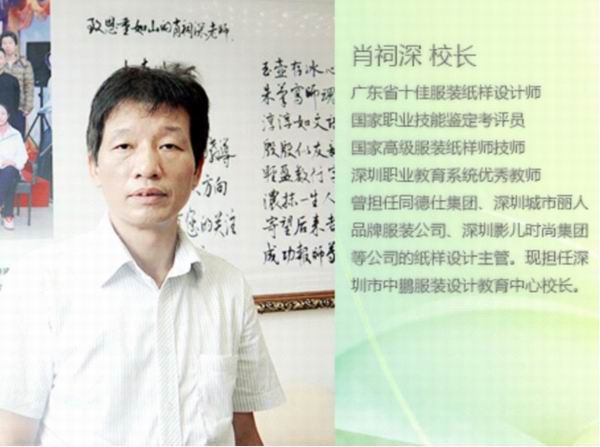 致恩重如山的肖祠深老师
玉壶存冰心
朱笔写师魂
谆谆如文语
殷殷似友
轻盈数行字
浓抹一生人
寄望后来者
成功报师尊
导
方向
您的关注
肖祠深 校长
广东省十佳服装纸样设计师
国家职业技能鉴定考评员
国家高级服装纸样师技师
深圳职业教育系统优秀教师
曾担任同德仕集团、深圳城市丽人
品牌服装公司、深圳影儿时尚集团
等公司的纸样设计主管。现担任深
圳市中鹏服装设计教育中心校长。